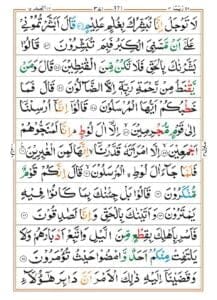 لَا تَوْجَلْ إِنَّا نُبَشِّرُكَ بِغُلٰمٍ عَلِيْمٍ ۝ قَالَ اَبَشَّرْتُمُوْنِيْ
عَلٰٓى اَنْ مَّسَّنِيَ الْكِبَرُ فَبِمَ تُبَشِّرُوْنَ ۝ قَالُوْا
بَشَّرْنٰكَ بِالْحَقِّ فَلَا تَكُنْ مِّنَ الْقٰنِطِيْنَ ۝ قَالَ وَمَنْ
يَّقْنَطُ مِنْ رَّحْمَةِ رَبِّهٖٓ اِلَّا الضَّآلُّوْنَ ۝ قَالَ فَمَا
خَطْبُكُمْ اَيُّهَا الْمُرْسَلُوْنَ ۝ قَالُوْٓا اِنَّآ اُرْسِلْنَآ
اِلٰى قَوْمٍ مُّجْرِمِيْنَ ۝ اِلَّآ اٰلَ لُوْطٍ ؕ اِنَّا لَمُنَجُّوْهُمْ
اَجْمَعِيْنَ ۝ اِلَّا امْرَاَتَهٗ قَدَّرْنَآ ۙ اِنَّهَا لَمِنَ الْغٰبِرِيْنَ ۝
فَلَمَّا جَآءَ اٰلَ لُوْطِ ِۨالْمُرْسَلُوْنَ ۝ قَالَ اِنَّكُمْ قَوْمٌ
مُّنْكَرُوْنَ ۝ قَالُوْا بَلْ جِئْنٰكَ بِمَا كَانُوْا فِيْهِ
يَمْتَرُوْنَ ۝ وَاَتَيْنٰكَ بِالْحَقِّ وَاِنَّا لَصٰدِقُوْنَ ۝
فَاَسْرِ بِاَهْلِكَ بِقِطْعٍ مِّنَ الَّيْلِ وَاتَّبِعْ اَدْبَارَهُمْ وَلَا
يَلْتَفِتْ مِنْكُمْ اَحَدٌ وَّامْضُوْا حَيْثُ تُؤْمَرُوْنَ ۝
وَقَضَيْنَآ اِلَيْهِ ذٰلِكَ الْاَمْرَ اَنَّ دَابِرَ هٰٓؤُلَآءِ